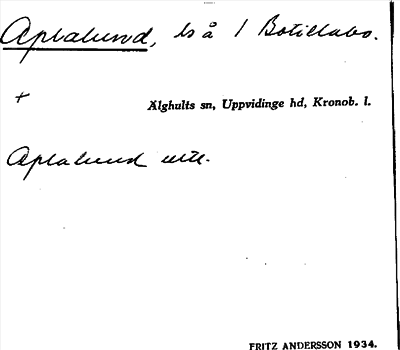 Aplalund, ls å 1 Botillabo.
+
Älghults sn, Uppvidinge hd, Kronob. l.
Aplalund utt.
FRITZ ANDERSSON 1934.